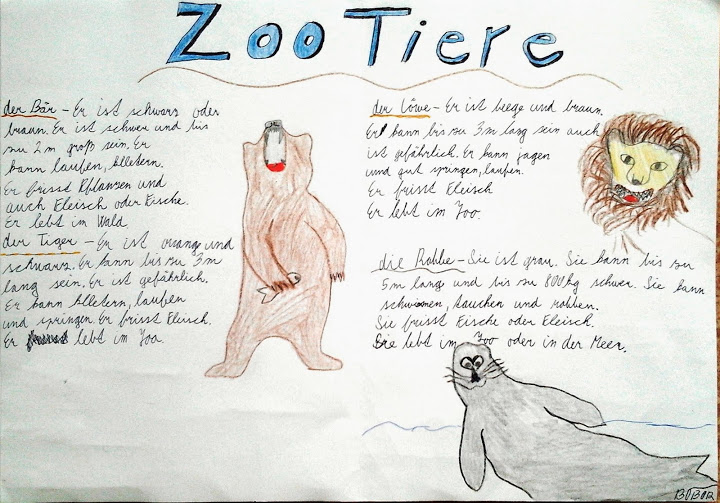 Zoo Tiere
der Bär - Er ist schwarz oder
braun. Er ist schwer und bis
zu 2m groß sein. Er
kann laufen, klletern.
Er frisst Pflanzen und
auch Fleisch oder Fische.
Er lebt im Wald.
der Tiger - Er ist orange und
schwarz. Er kann bis zu 3m
lang sein. Er ist gefährlich.
Er kann klletern, laufen
und springen. Er frisst Fleisch.
Er lebt im Zoo.
der Löwe - Er ist beege und braun.
Er kann bis zu 3m lang sein auch
ist gefährlich. Er kann jagen
und gut springen, laufen.
Er frisst Fleisch
Er lebt im Zoo.
die Robbe - Sie ist grau. Sie kann bis zu
5m lang und bis zu 800kg schwer. Sie kann
schwimmen, tauchen und robben.
Sie frisst Fische oder Fleisch.
Sie lebt im Zoo oder in der Meer.